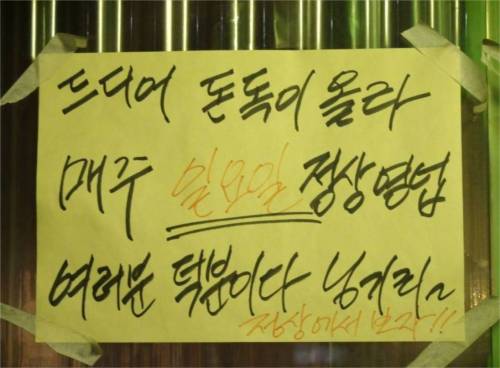 드디어 돈독이 올라
매주 일요일 정상영업
여러분 덕분이다 닝기리~
정상에서 보자!!